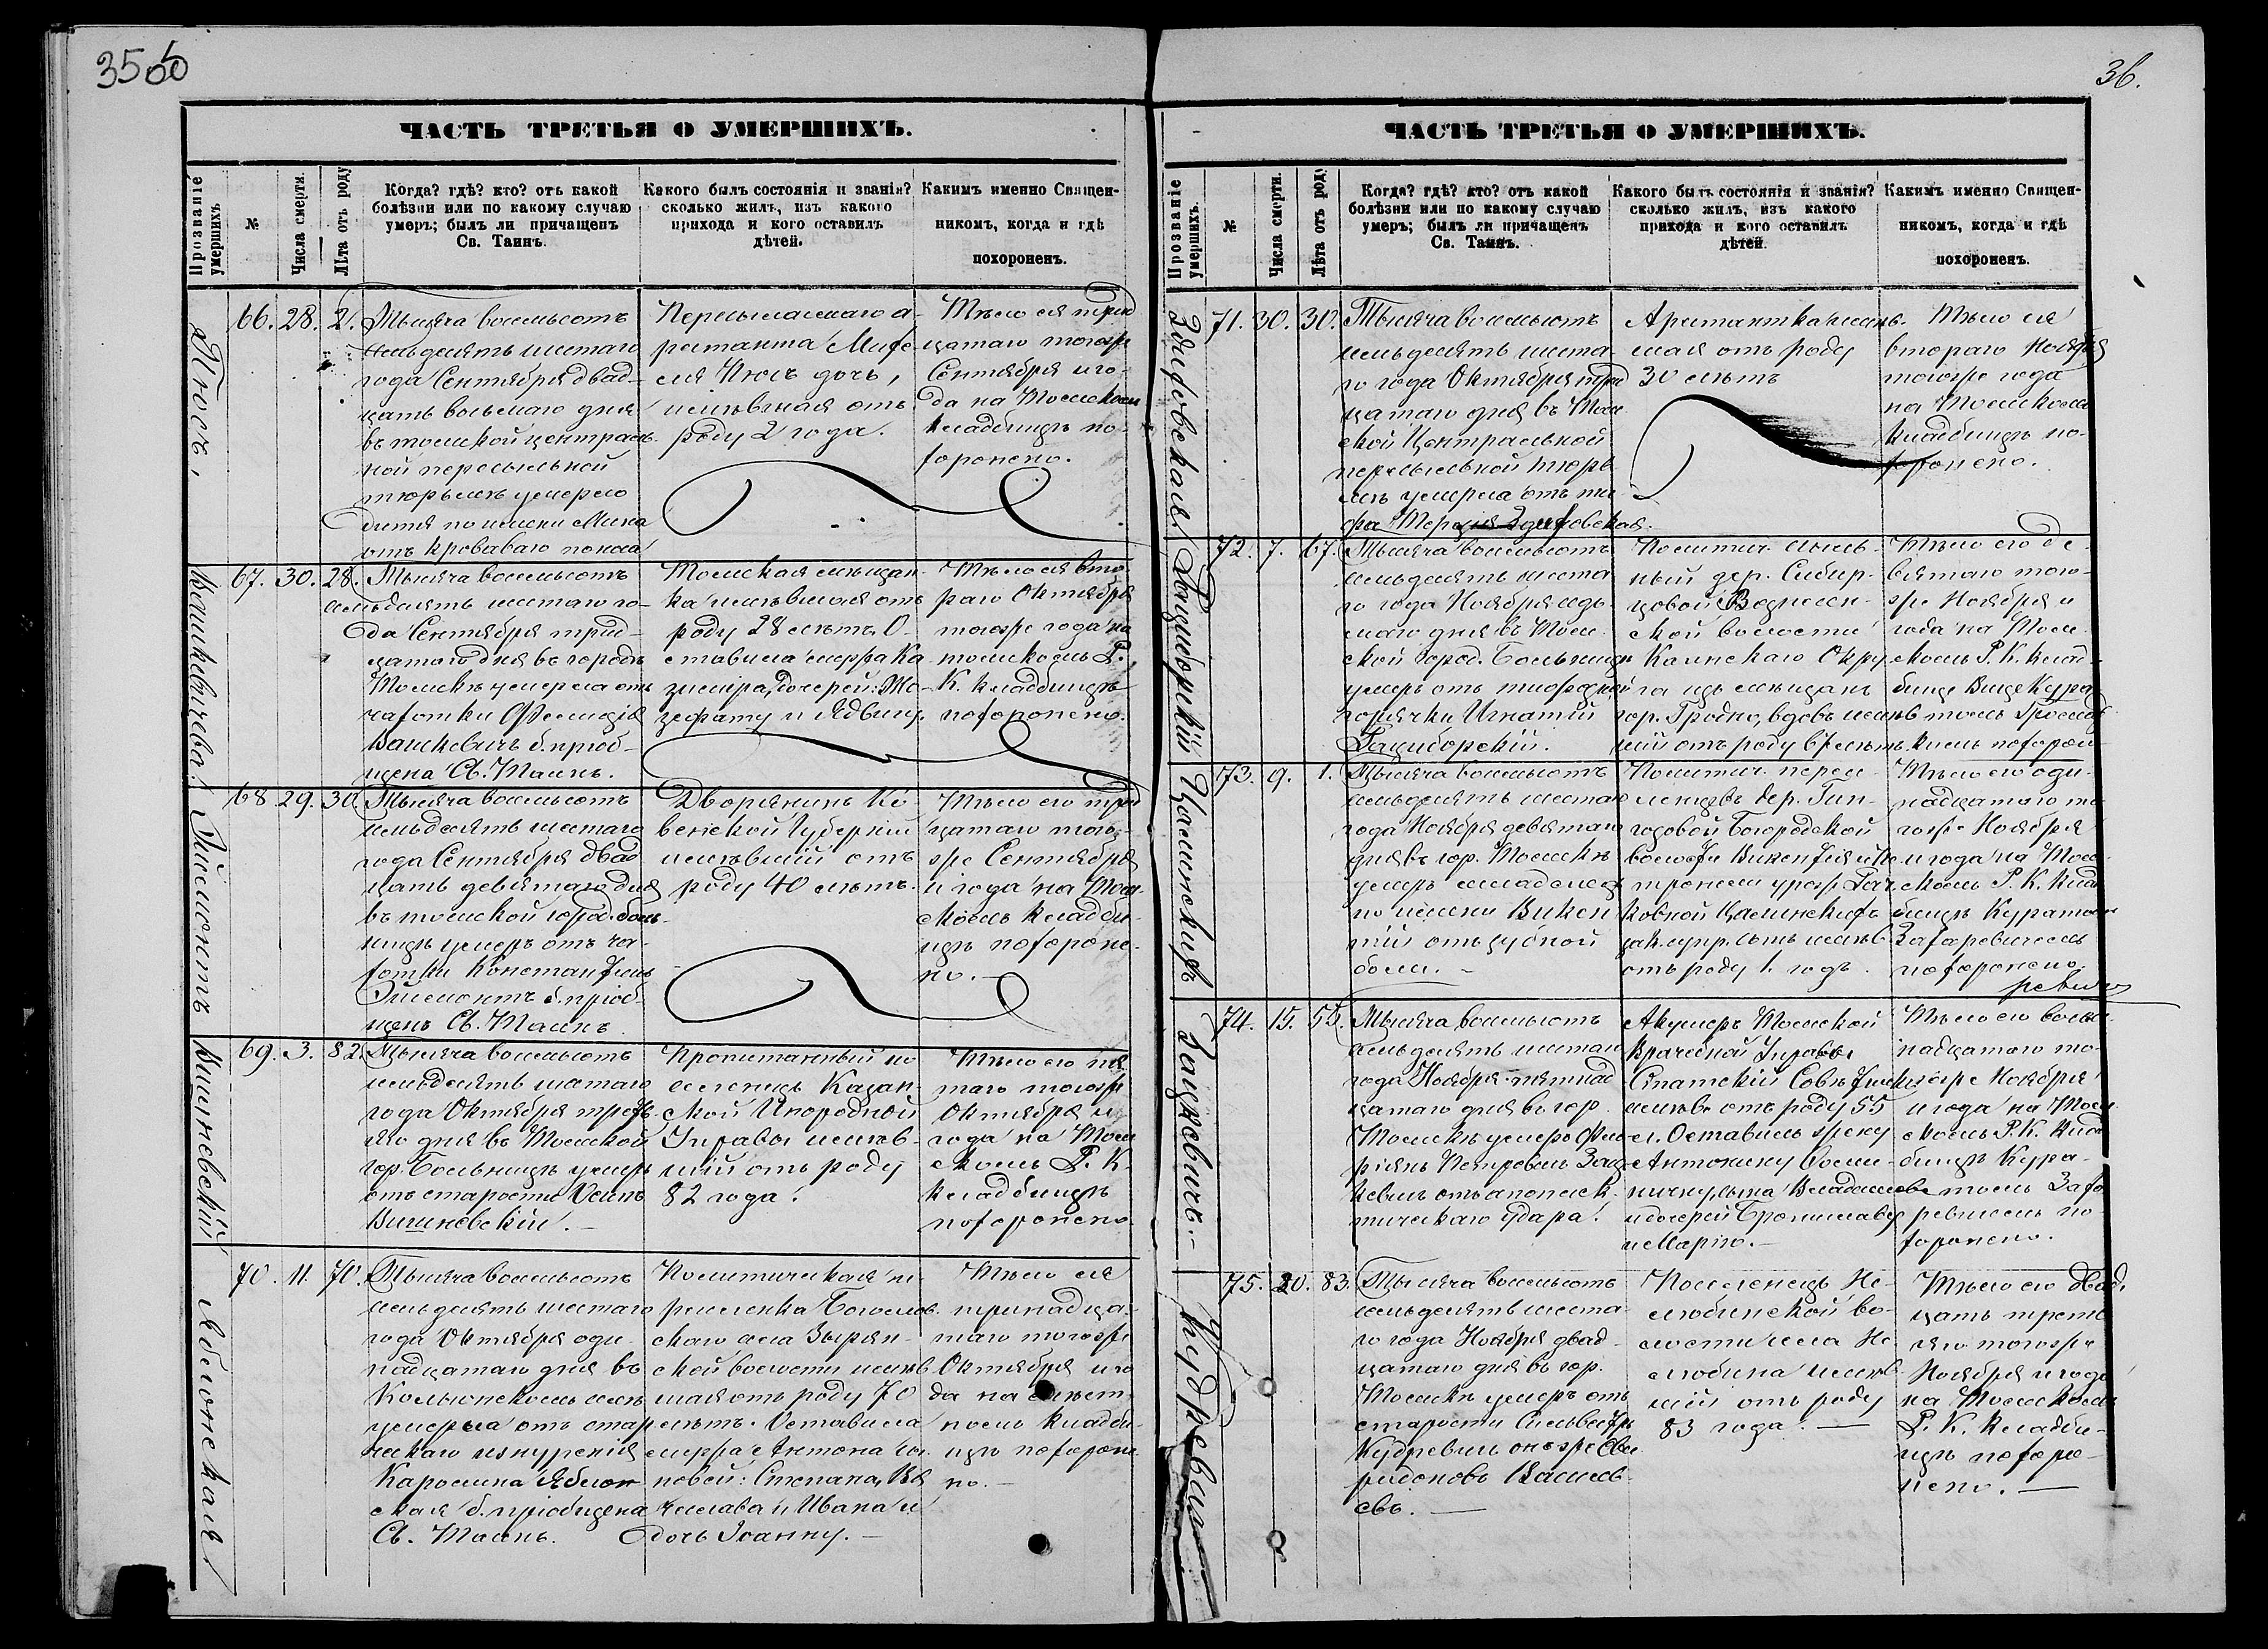 35об
ЧАСТЬ ТРЕТЬЯ О УМЕРШИХЪ.
Прозваніе умершихъ
№
Числа смерти.
Лѣта отъ роду
Когда? гдѣ? кто? отъ какой
болѣзни или по какому случаю
умеръ; былъ ли причащенъ
Св. Таинъ.
Какого былъ состоянія и званія?
сколько жилъ, изъ какого
прихода и кого оставилъ
дѣтей.
Какимъ именно Священ-
никомъ, когда и гдѣ
похороненъ.
66. 28. 2.
Тысяча восемьсотъ
семьдесятъ шестаго
года Сентября двад-
цать восьмаго дня
въ томской централь-
ной пересыльной
тюрьмѣ умерло
дитя по имени
отъ кроваваго поноса
Пересыльнаго а-
рестанта
дочь,
имѣвшая отъ
роду 2 года.
Тѣло ея трид
цатаго тогоже
Сентября и го-
да на Томскомъ
кладбищѣ по-
хоронено.
Вашкевичева
67. 30. 28.
Тысяча восемьсотъ
семьдесятъ шестаго го-
да Сентября трид-
цатаго дня въ городѣ
Томскѣ умерла отъ
чахотки
Вашкевичъ б. пріоб-
щена Св. Таинъ.
Томская мѣщан-
ка имѣвшая отъ
роду 28 лѣтъ. О-
ставила мужа Ка-
зиміра, дочерей: Іо-
зефату и Ядвигу.
Тѣло ея вто-
раго Октября
тогоже года на
томскомъ Р.
К. кладбищѣ
похоронено.
Эймонтъ
68 29. 30
Тысяча восемьсотъ
семьдесятъ шестаго
года Сентября двад
цать девятаго дня
въ томской город. боль-
ницѣ умеръ отъ ча-
хотки Константинъ
Эймонтъ б. пріоб-
щенъ Св. Таинъ.
Дворянинъ Ко-
венской Губерніи
имѣвшій отъ
роду 40 лѣтъ.
Тѣло его трид
цатаго того-
же Сентября
и года на Том-
скомъ кладби-
щѣ похороне-
но. —
Вишневскій
69. 3. 82.
Тысяча восемьсотъ
семьдесятъ шестаго
года Октября треть-
яго дня въ Томской
гор. Больницѣ умеръ
отъ старости Осипъ
Вишневскій. —
Пропитанный по
селенецъ Казан-
ской Инородной
Управы имѣв-
шій отъ роду
82 года.
Тѣло его пя
таго тогоже
Октября и
года на Том
скомъ Р. К.
кладбищѣ
похоронено.
Яблонская
70. 11. 70.
Тысяча восемьсотъ
семьдесятъ шестаго
года Октября оди-
надцатаго дня въ
умерла отъ стар
ческаго изнуренія
Каролина Яблон
ская б. пріобщена
Св. Таинъ.
Политическая пе
реселенка Богослов-
скаго села Зырян-
ской волости имѣв
шая отъ роду 70
лѣтъ. Оставила
мужа Антона сы
новей: Степана,
и Ивана и
дочь Іоанну. —
Тѣло ея
тринадца-
таго тогоже
Октября и го
да на мѣст-
номъ кладби-
щѣ похороне
но. —
36.
ЧАСТЬ ТРЕТЬЯ О УМЕРШИХЪ.
Прозваніе умершихъ.
№
Числа смерти.
Лѣта отъ роду
Когда? гдѣ? кто? отъ какой
болѣзни или по какому случаю
умеръ; былъ ли причащенъ
Св. Таинъ.
Какого былъ состоянія и званія?
сколько жилъ, изъ какого
прихода и кого оставилъ
дѣтей.
Какимъ именно Священ-
никомъ, когда и гдѣ
похороненъ.
71. 30. 30.
Тысяча восемьсотъ
семьдесятъ шеста-
го года Октября трид
цатаго дня въ Том-
ской Центральной
пересыльной тюрь
мѣ умерла отъ ти-
фа
Арестантка имѣв-
шая отъ роду
30 лѣтъ
Тѣло ея
втораго Ноября
тогоже года
на Томскомъ
кладбищѣ по-
хоронено.
Рациборскій
72. 7. 67.
Тысяча восемьсотъ
семьдесятъ шеста
го года Ноября седь-
маго дня въ Том-
ской город. Больницѣ
умеръ отъ тифозной
горячки Игнатій
Рациборскій.
Политич. ссыль-
ный дер. Сибир-
цовой Вознесен-
ской волости
Каинскаго Окру
га изъ мѣщанъ
гор. Гродно, вдовъ имѣв
шій отъ роду 67 лѣтъ.
Тѣло его де-
вятаго того-
же Ноября и
года на Том-
скомъ Р. К. клад-
бищѣ Вице Кура
томъ Громад
похорон-
Цалинскихъ
73. 9. 1.
Тысяча восемьсотъ
семьдесятъ шестаго
года Ноября девятаго
дня въ гор. Томскѣ
умеръ младенецъ
по имени Викен
тій отъ зубной
боли. —
Политич. пересе-
ленцевъ дер.
Богородской
волости Викентія и
Цалинскихъ
зак. супр. сынъ имѣв.
отъ роду 1. годъ.
Тѣло его оди-
надцатаго то-
гоже Ноября
и года на Том-
скомъ Р. К. клад
бищѣ Куратомъ
Захаревичемъ
похоронено.
Зацкевичъ. —
74. 15. 55.
Тысяча восемьсотъ
семьдесятъ шестаго
года Ноября пятнад
цатаго дня въ гор.
Томскѣ умеръ Фло-
ріянъ Петровичъ Зац-
кевичъ отъ апоплек-
тическаго удара.
Акушеръ Томской
Врачебной Управы
Статскій Совѣтникъ
имѣв. отъ роду 55
л. Оставилъ жену
Антонину
сына Владислава
и дочерей Брониславу
и Марію. —
Тѣло его восем-
надцатаго то-
гоже Ноября
и года на Том-
скомъ Р. К. клад-
бищѣ Кура-
томъ Заха
ревичемъ по-
хоронено.
Кудревичъ
75. 20. 83.
Тысяча восемьсотъ
семьдесятъ шеста-
го года Ноября двад-
цатаго дня въ гор.
Томскѣ умеръ отъ
старости Сильвестръ
Кудревичъ онъ же Спи
ридоновъ Василь-
евъ. —
Поселенецъ Не-
любинской во-
лости села Не
любина имѣв
шій отъ роду
83 года. —
Тѣло его двад-
цать треть
яго тогоже
Ноября и года
на Томскомъ
Р. К. кладби-
щѣ похоро-
нено. —